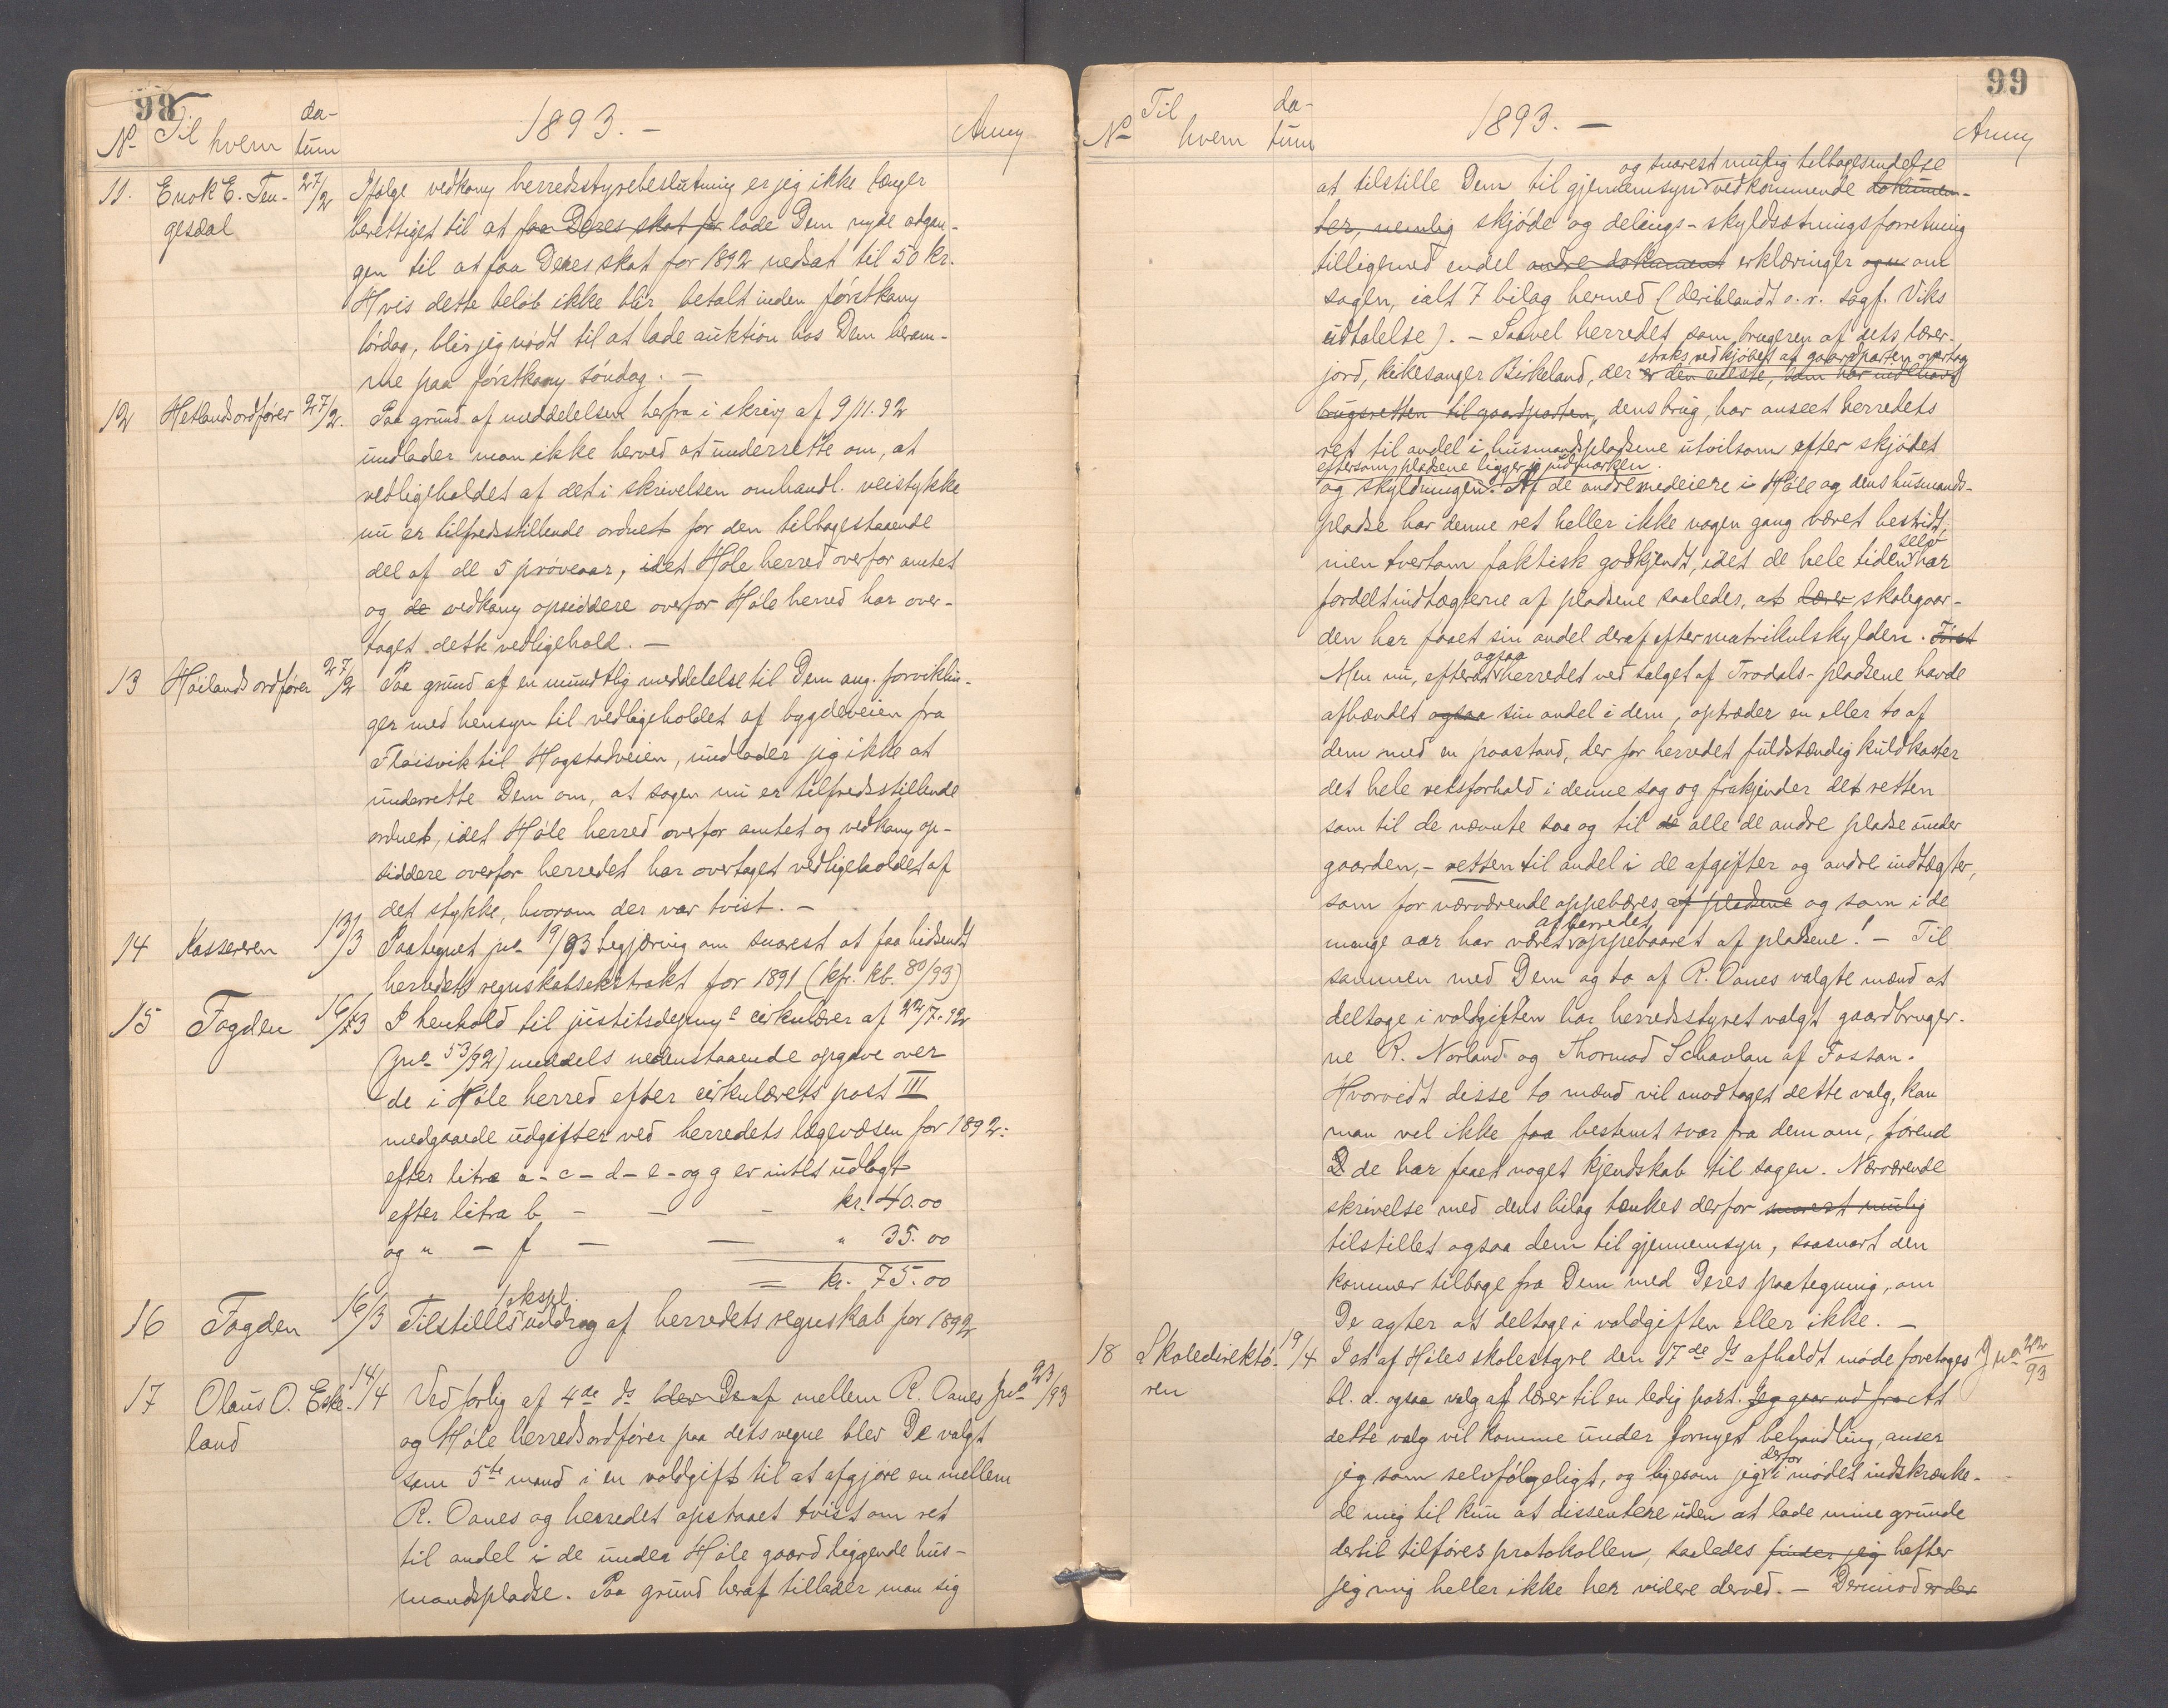 98
No Til hvem da-tum 1893. — Anm
11. Enok E. Ten- 27/2 Ifølge vedkom herredsstyrebeslutning er jeg ikke længer
gesdal berettiget til at faa Deres skat for lade Dem nyde adgan-
gen til at faa Deres skat for 1892 nedsat til 50 kr.
Hvis dette beløb ikke blir betalt inden førstkom
lørdag, blir jeg nødt til at lade auktion hos Dem beram-
me paa førstkom søndag. —
12 Hetlands ordfører 27/2. Paa grund af meddelelsen herfra i skriv af 9/11. 92
undlader man ikke herved at underrette om, at
vedligeholdet af det i skrivelsen omhandl. veistykke
nu er tilfredsstillende ordnet for den tilbagestaaende
del af de 5 prøveaar, idet Høle herred overfor amtet
og de vedkom opsiddere overfor Høle herred har over-
taget dette vedligehold. —
13 Høilands ordfører 27/2 Paa grund af en mundtlig meddelelse til Dem ang. forviklin-
ger med hensyn til vedligeholdet af bygdeveien fra
Fløisvik til Hogstadveien, undlader jeg ikke at
underrette Dem om, at sagen nu er tilfredsstillende
ordnet, idet Høle herred overfor amtet og vedkom op-
siddere overfor herredet har overtaget vedligeholdet af
det stykke, hvorom der var tvist. —
14 Kassereren 13/3 Paategnet jno 19/93 begjæring om snarest at faa hidsendt
herredets regnskabsekstrakt for 1891 (kfr. kb. 80/93)
15 Fogden 16/3 I henhold til justitsdepms cirkulærer af 22/7. 92
(jno 53/92) meddels nedenstaaende opgave over
de i Høle herred efter cirkulærets post III
medgaaede udgifter ved herredets lægevæsen for 1892:
efter litra a - c - d - e - og g er intet udlagt
efter litra b — — - kr. 40.00
og " — f — — " 35.00
= kr. 75.00
16 Fogden 16/3 Tilstilles 1 ekspl. uddrag af herredets regnskab for 1892
17 Olaus O. Eske- 14/4 Ved forlig af 4de ds blev De af mellem R. Oanes jno 23/93
land og Høle herredsordfører paa dets vegne blev De valgt
som 5te mand i en voldgift til at afgjøre en mellem
R. Oanes og herredet opstaaet tvist om ret
til andel i de under Høle gaard liggende hus-
mandspladse. Paa grund heraf tillader man sig
99
No Til hvem da-tum 1893. — Anm
og snarest mulig tilbagesendelse
at tilstille Dem til gjennemsyn vedkommende dokumen-
ter, nemlig skjøde og delings-skyldsætningsforretning
tilligemed endel andre dokument erklæringer ogu om
sagen, ialt 7 bilag herned (deriblandt o.r. sagf. Viks
udtalelse). — Saavel herredet som brugeren af dets lærer-
straks ved kjøbet af gaardparten overtog
jord, kirkesanger Birkeland, der er den eneste, som har indehavt
brugsretten til gaardparten, dens brug, har anseet herredets
ret til andel i husmandspladsene utvilsom efter skjødet
eftersom pladsene ligger i udmarken.
og skyldningen. Af de andre medeiere i Høle og dens husmands-
pladse har denne ret heller ikke nogen gang været bestridt,
selv
men tvertom faktisk godkjendt, idet de hele tiden har
fordelt indtægterne af pladsene saaledes, at lærer skolegaar-
den har faaet sin andel deraf efter matrikulskylden. Først
ogsaa
Men nu, efterat herredet ved salget af Trodals-pladsene havde
afhændet ogsaa sin andel i dem, optræder en eller to af
dem med en paastand, der for herredet fuldstændig kuldkaster
det hele retsforhold i denne sag og frakjender det retten
som til de nævnte saa og til de alle de andre pladse under
gaarden, — retten til andel i de afgifter og andre indtægter,
som for nærværende oppebæres af pladsene og som i de
af herredet
mange aar har været oppebaaret af pladsene! — Til
sammen med Dem og to af R. Oanes valgte mænd at
deltage i voldgiften har herredsstyret valgt gaardbruger-
ne R. Norland og Thormod Schavlan af Fossan.
Hvorvidt disse to mænd vil modtaget dette valg, kan
man vel ikke faa bestemt svar fra dem om, førend
de har faaet noget kjendskab til sagen. Nærværende
skrivelse med dens bilag tænkes derfor snarest mulig
tilstillet ogsaa dem til gjennemsyn, saasnart den
kommer tilbage fra Dem med Deres paategning, om
De agter at deltage i voldgiften eller ikke. —
18 Skoledirektø- 19/4 I et af Høles skolestyre den 17de ds afholdt møde foretoges Jno 22/93
ren bl. a. ogsaa valg af lærer til en ledig post. Jeg gaar ud fra At
dette valg vil komme under fornyet behandling, anser
derfor
jeg som selvfølgeligt, og ligesom jeg i mødet indskrænke-
de mig til kun at dissentere uden at lade mine grunde
dertil tilføres protokollen, saaledes finder jeg hefter
jeg mig heller ikke her videre derved. — Derimod er der